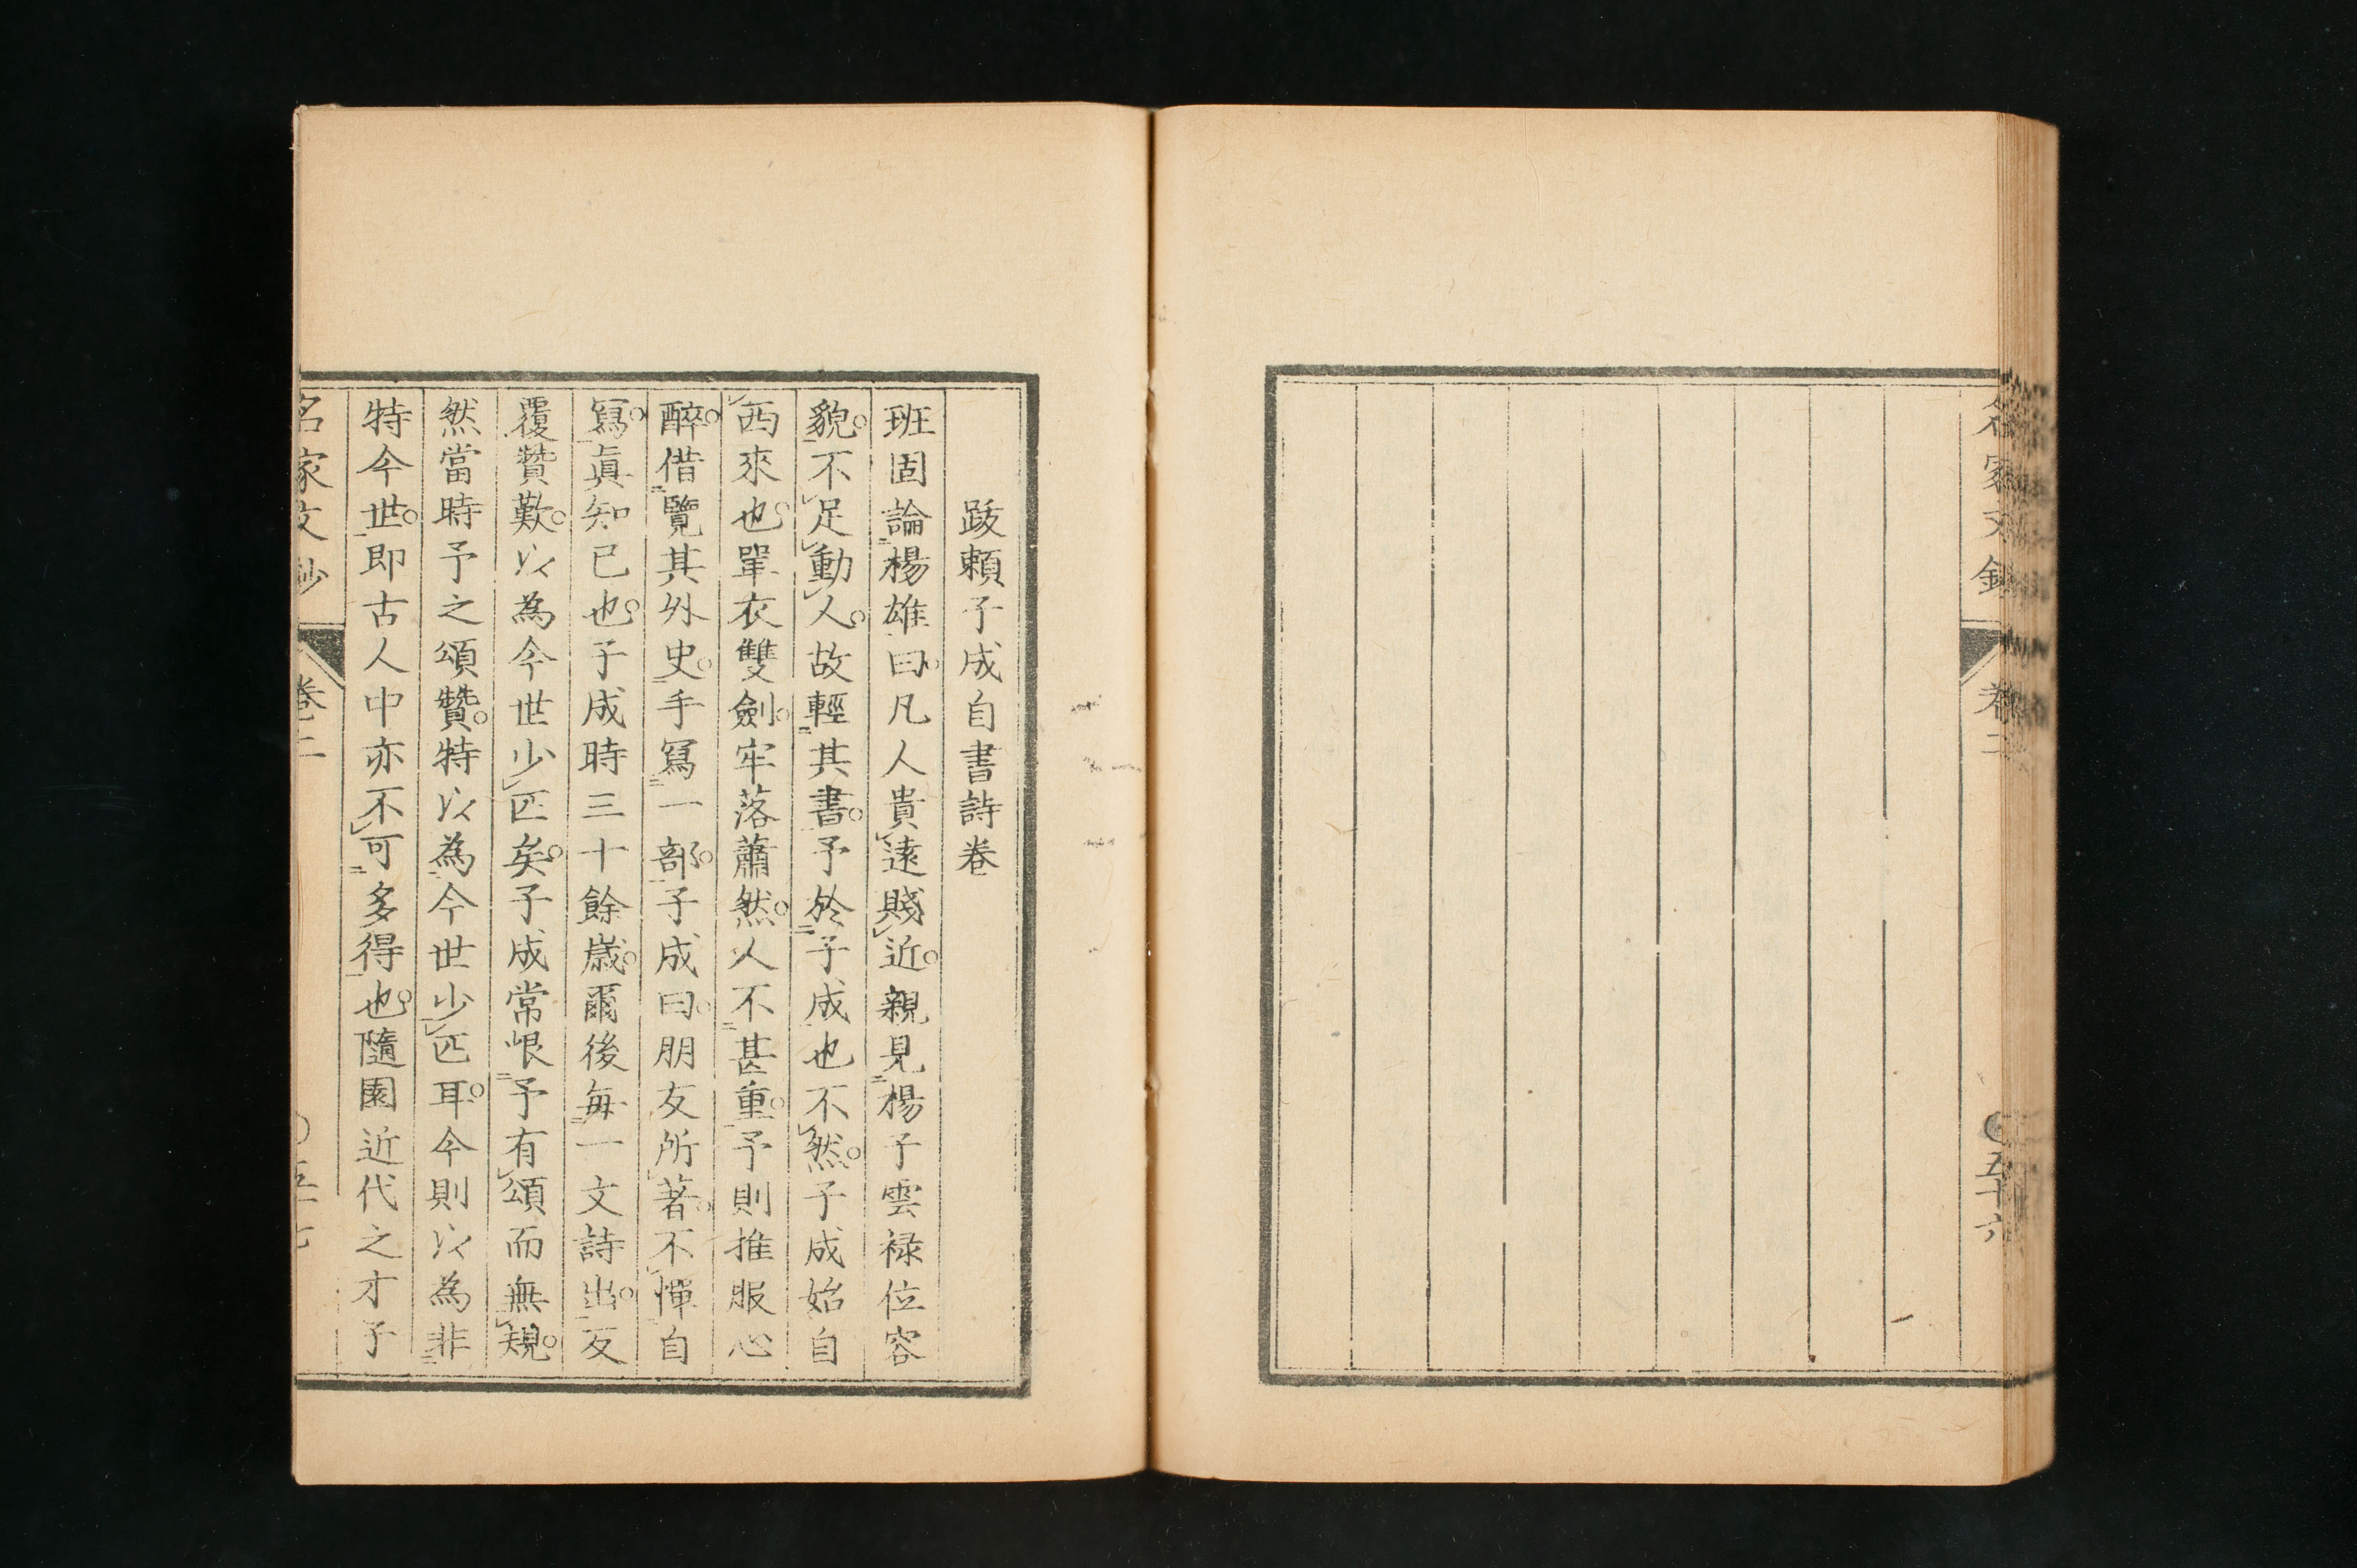 名家文鈔
卷二
五十六
跋頼子成自書詩卷
班固論楊雄曰凡人貴遠賤近親見楊子雲禄位容
貌不足動人故輕其書予於子成也不然子成始自
西來也單衣雙劍牢落蕭然人不甚重予則推服心
醉借覽其外史手寫一部子成曰朋友所著不憚自
寫真知已也子成時三十餘歳爾後毎一文詩出反
覆贊歎以為今世少匹矣子成常恨予有頌而無規
然當時予之頌贊特以為今世少匹耳今則以為非
特今世即古人中亦不可多得也隨園近代之才子
名家文鈔
卷二
五十七